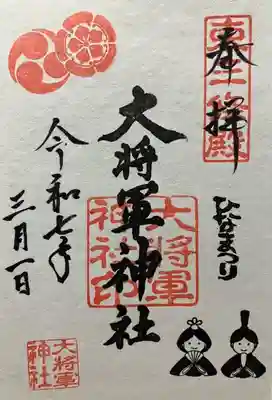 奉拝
ひなまつり
大将軍神社
大将軍
神社印
令和七年
三月一日
大将軍
神社